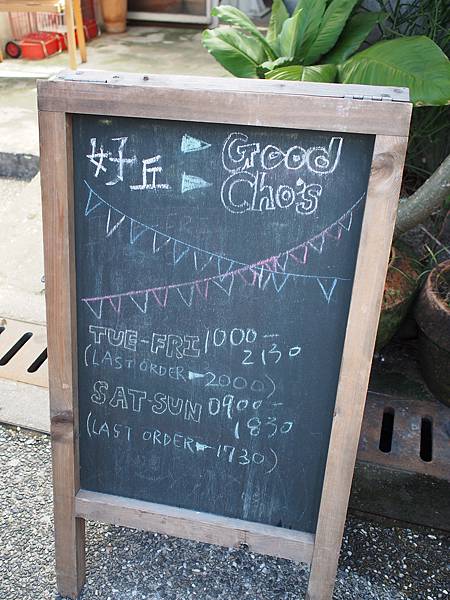 好丘 Good
Cho's
TUE-FRI 1000-
2130
(LAST ORDER 2000)
SAT-SUN 0900-
1830
(LAST ORDER 1730)